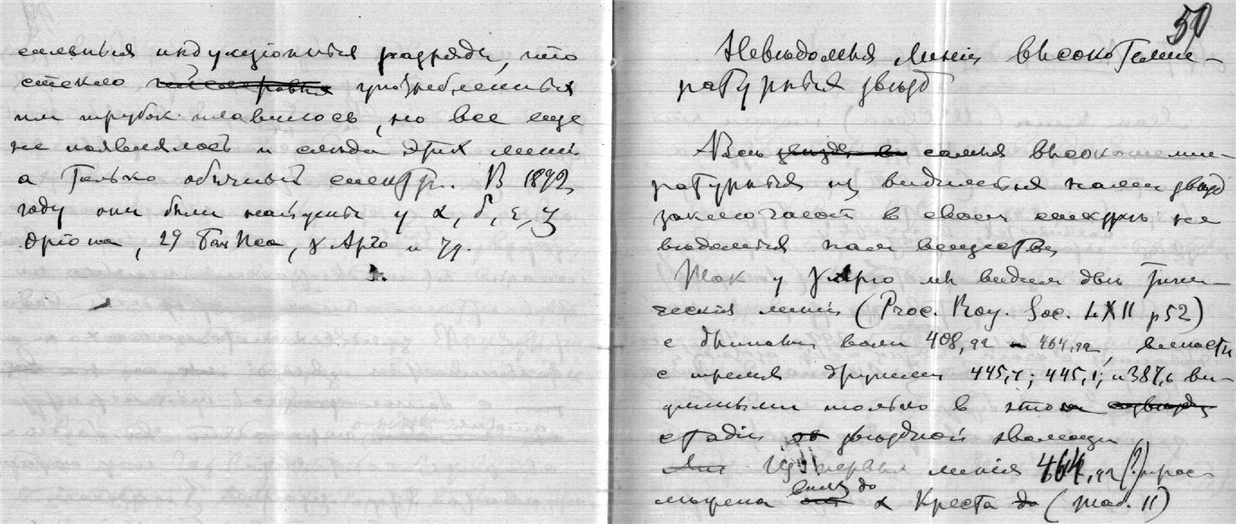 сильныя индукціонныя разряды, что
стекло употребленныхъ
им трубок плавилось, но все еще
не появлялось и следа этих линій
а только обычный спектр. В 1892
году они были найдены у α, β, ε, ζ
Оріона, 29 Can Maj, γ Арго и др.
50
Неведомыя линіи высокотемпе-
ратурныя звезд
Все самыя высокотемпе-
ратурныя из видимыя нами звезд
заключают в своем спектре не
ведомыя нам вещества
Так у γ Арго мы видим две типи-
ческія линіи (Proc. Roy. Soc. LXII p 52)
с длинами волн 408,92 – 464,92, вместе
с тремя другими 445,4; 445,1; и 387,6 ви-
димыми только в этой
стадіи звездной эволюціи
Из первых линія 464,92 (?) прос-
лежена вниз до α Креста (таб. II)